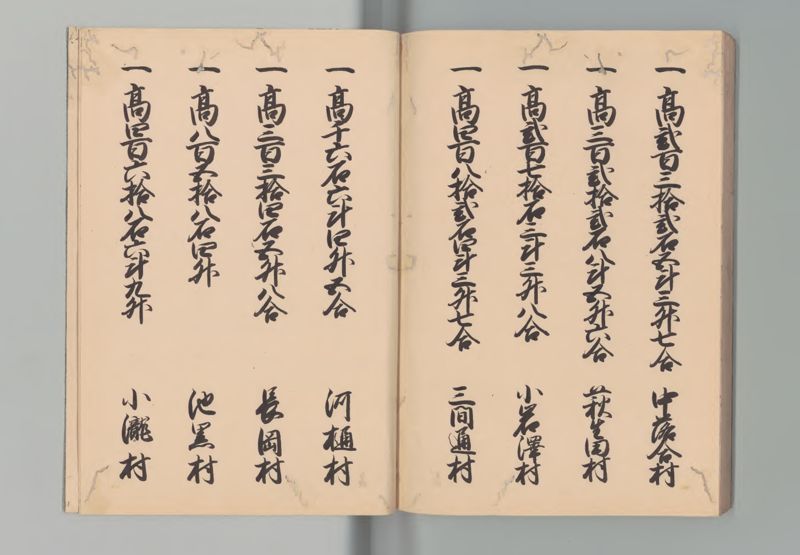 一 高弐百三拾弐石五斗三升七合 中落合村
一 高三百弐拾弐石八斗五升六合 萩生田村
一 高弐百七拾石三斗三升八合 小岩澤村
一 高四百八拾弐石四斗三升七合 三間通村
一 高千六石六斗四升五合 河樋村
一 高三百三拾四石五升八合 長岡村
一 高八百五拾八石四升 池黒村
一 高四百六拾八石六斗九升 小瀧村